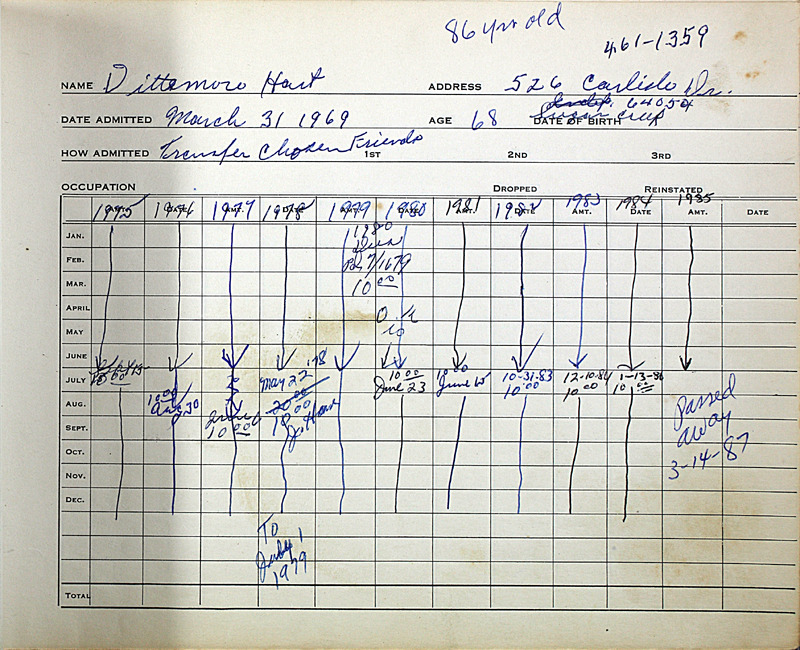 86 yrs old
461-1359
NAME Dittemore Hart ADDRESS 526 Carlisle Dr.
64054
DATE ADMITTED March 31 1969 AGE 68 DATE OF BIRTH Sugar Creek
HOW ADMITTED Transfer Chosen Friends 1ST 2ND 3RD
OCCUPATION DROPPED REINSTATED
1975 1976 1977 1978 1979 1980 1981 1982 1983 1984 1985
AMT. DATE AMT. DATE AMT. DATE AMT. DATE AMT. DATE AMT. DATE
JAN. 1980
FEB. 7/1679
MAR. 10 00
APRIL
MAY 10
JUNE
JULY 10 00 May 22 '78 10 00 June 23 10 00 June 15 10-31-83 10 00 12-10-84 10 00 1-13-86 10 00
AUG. 10 00 Aug 30 20 00 Passed
SEPT. 10 00 10 00 J. Hart away
OCT. 3-14-87
NOV.
DEC.
To
July 1
1979
TOTAL